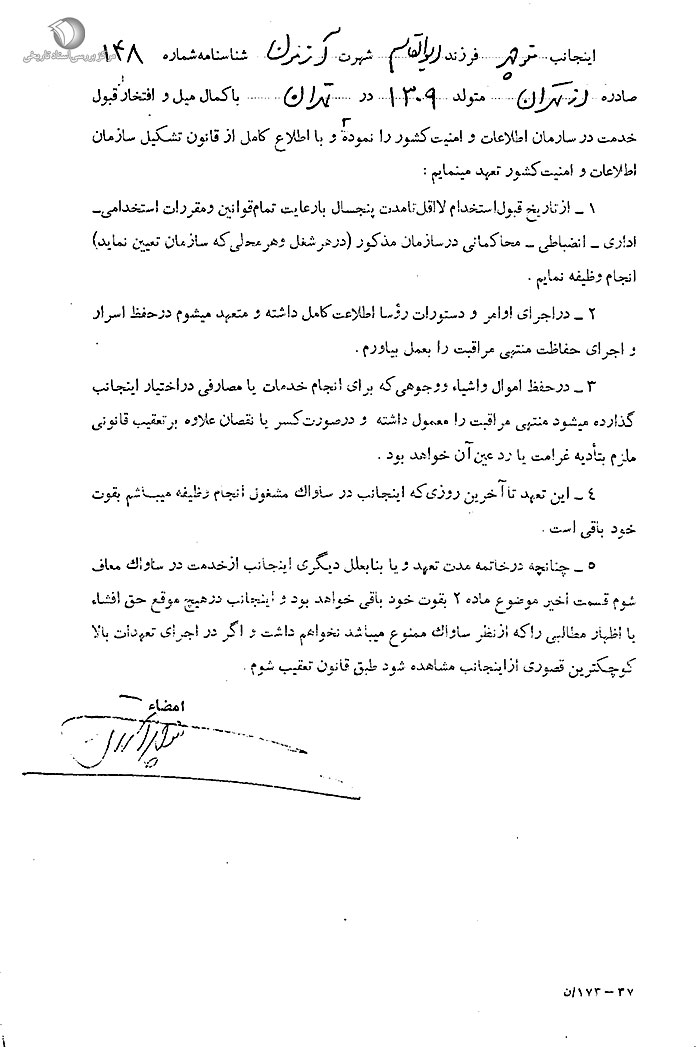 مرکز بررسی اسناد تاریخی
اینجانب منوچهر فرزند ابوالقاسم شهرت آزمون شناسنامه شماره ۱۴۸
صادره از تهران متولد ۱۳۰۹ در تهران با کمال میل و افتخار قبول
خدمت در سازمان اطلاعات و امنیت کشور را نموده و با اطلاع کامل از قانون تشکیل سازمان
اطلاعات و امنیت کشور تعهد مینمایم :
۱ ـ از تاریخ قبول استخدام لااقل تا مدت پنجسال با رعایت تمام قوانین و مقررات استخدامی ـ
اداری ـ انضباطی ـ محاکماتی در سازمان مذکور (در هر شغل و هر محلی که سازمان تعیین نماید)
انجام وظیفه نمایم .
۲ ـ در اجرای اوامر و دستورات رؤسا اطلاعت کامل داشته و متعهد میشوم در حفظ اسرار
و اجرای حفاظت منتهی مراقبت را بعمل بیاورم .
۳ ـ در حفظ اموال و اشیاء و وجوهی که برای انجام خدمات یا مصارفی در اختیار اینجانب
گذارده میشود منتهی مراقبت را معمول داشته و در صورت کسر یا نقصان علاوه بر تعقیب قانونی
ملزم بتأدیه غرامت یا رد عین آن خواهد بود .
٤ ـ این تعهد تا آخرین روزی که اینجانب در ساواک مشغول انجام وظیفه میباشم بقوت
خود باقی است .
٥ ـ چنانچه در خاتمه مدت تعهد و یا بنا بعلل دیگری اینجانب از خدمت در ساواک معاف
شوم قسمت اخیر موضوع ماده ۲ بقوت خود باقی خواهد بود و اینجانب در هیچ موقع حق افشاء
یا اظهار مطالبی را که از نظر ساواک ممنوع میباشد نخواهم داشت و اگر در اجرای تعهدات بالا
کوچکترین قصوری از اینجانب مشاهده شود طبق قانون تعقیب شوم .
امضاء
۳۷ – ۱۷۳/ن